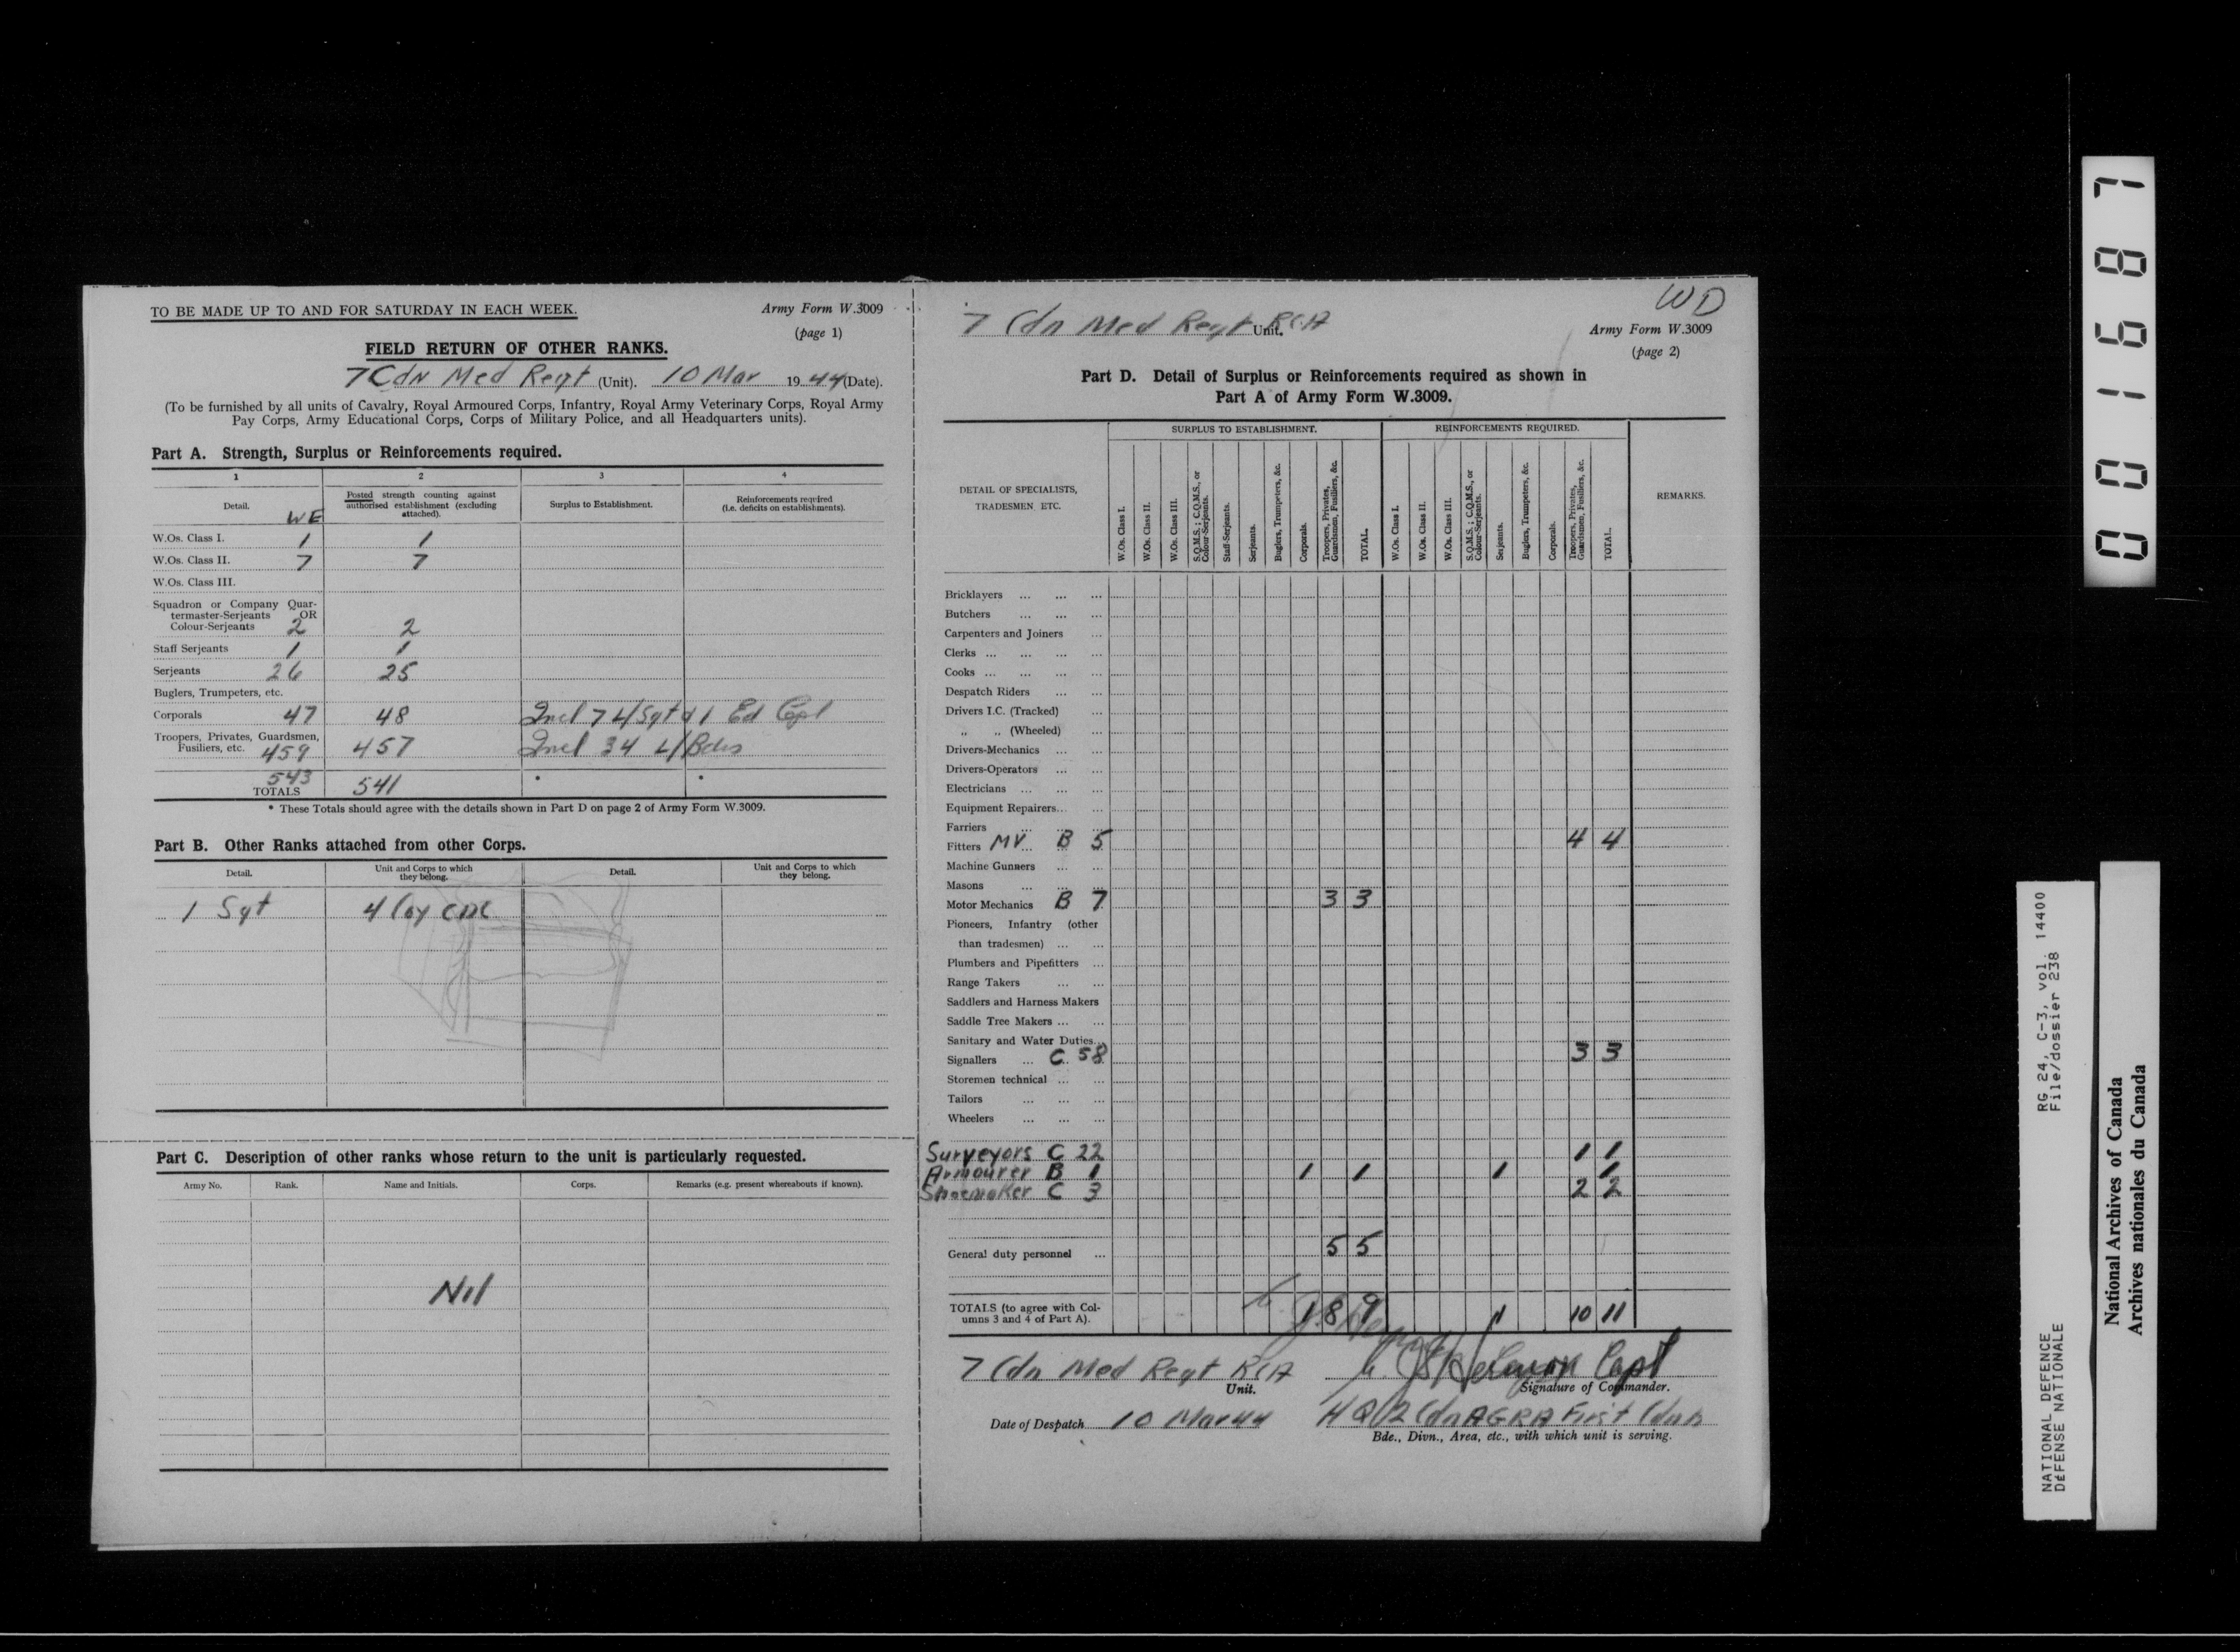 TO BE MADE UP TO AND FOR SATURDAY IN EACH WEEK.
Army Form W.3009
(page 1)
FIELD RETURN OF OTHER RANKS.
7 Cdn Med Regt (Unit). 10 Mar 1944 (Date).
(To be furnished by all units of Cavalry, Royal Armoured Corps, Infantry, Royal Army Veterinary Corps, Royal Army
Pay Corps, Army Educational Corps, Corps of Military Police, and all Headquarters units).
Part A. Strength, Surplus or Reinforcements required.
1 2 3 4
Detail. WE
Posted strength counting against
authorised establishment (excluding
attached).
Surplus to Establishment.
Reinforcements required
(i.e. deficits on establishments).
W.Os. Class I. 1 1
W.Os. Class II. 7 7
W.Os. Class III.
Squadron or Company Quar-
termaster-Serjeants OR
Colour-Serjeants 2 2
Staff Serjeants 1 1
Serjeants 26 25
Buglers, Trumpeters, etc.
Corporals 47 48 Incl 7 L/Sgt & 1 Ed Cpl
Troopers, Privates, Guardsmen,
Fusiliers, etc. 459 457 Incl 34 L/Bdrs
543
TOTALS 541 * *
* These Totals should agree with the details shown in Part D on page 2 of Army Form W.3009.
Part B. Other Ranks attached from other Corps.
Detail.
Unit and Corps to which
they belong.
Detail.
Unit and Corps to which
they belong.
1 Sgt 4 Coy CDC
Part C. Description of other ranks whose return to the unit is particularly requested.
Army No. Rank. Name and Initials. Corps. Remarks (e.g. present whereabouts if known).
Nil
WD
7 Cdn Med Regt RCA Unit.
Army Form W.3009
(page 2)
Part D. Detail of Surplus or Reinforcements required as shown in
Part A of Army Form W.3009.
DETAIL OF SPECIALISTS,
TRADESMEN, ETC.
SURPLUS TO ESTABLISHMENT.
W.Os. Class I.
W.Os. Class II.
W.Os. Class III.
S.Q.M.S.; C.Q.M.S., or
Colour-Serjeants.
Staff-Serjeants.
Serjeants.
Buglers, Trumpeters, &c.
Corporals.
Troopers, Privates,
Guardsmen, Fusiliers, &c.
TOTAL.
REINFORCEMENTS REQUIRED.
W.Os. Class I.
W.Os. Class II.
W.Os. Class III.
S.Q.M.S.; C.Q.M.S., or
Colour-Serjeants.
Serjeants.
Buglers, Trumpeters, &c.
Corporals.
Troopers, Privates,
Guardsmen, Fusiliers, &c.
TOTAL.
REMARKS.
Bricklayers ... ... ...
Butchers ... ... ...
Carpenters and Joiners ...
Clerks ... ... ... ...
Cooks ... ... ... ...
Despatch Riders ... ...
Drivers I.C. (Tracked) ...
„ „ (Wheeled) ...
Drivers-Mechanics ... ...
Drivers-Operators ... ...
Electricians ... ... ...
Equipment Repairers... ...
Farriers ... ... ...
Fitters MV B 5 4 4
Machine Gunners ... ...
Masons ... ... ...
Motor Mechanics B 7 3 3
Pioneers, Infantry (other
than tradesmen) ... ...
Plumbers and Pipefitters ...
Range Takers ... ...
Saddlers and Harness Makers
Saddle Tree Makers ... ...
Sanitary and Water Duties...
Signallers ... C 58 3 3
Storemen technical ... ...
Tailors ... ... ...
Wheelers ... ... ...
Surveyors C 22 1 1
Armourer B 1 1 1 1 1
Shoemaker C 3 2 2
General duty personnel ... 5 5
TOTALS (to agree with Col-
umns 3 and 4 of Part A). 1 8 9 1 10 11
7 Cdn Med Regt RCA
Unit.
Capt
Signature of Commander.
Date of Despatch 10 Mar 44
HQ 2 Cdn AGRA First Cdn
Bde., Divn., Area, etc., with which unit is serving.
001687
RG 24, C-3, vol. 14400
File/dossier 238
NATIONAL DEFENCE
DÉFENSE NATIONALE
National Archives of Canada
Archives nationales du Canada